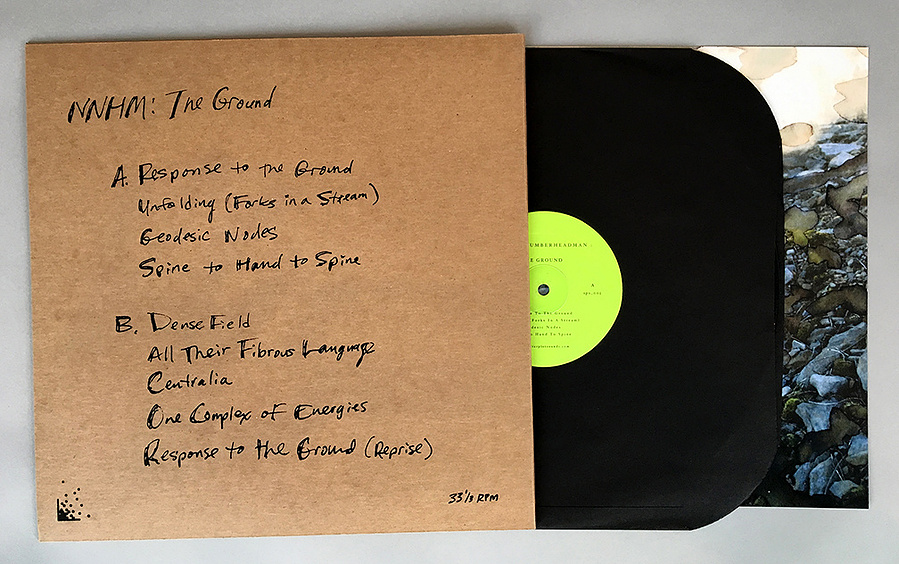 NNHM: The Ground
A. Response to the Ground
Unfolding (Forks in a Stream)
Geodesic Nodes
Spine to Hand to Spine
B. Dense Field
All Their Fibrous Language
Centralia
One Complex of Energies
Response to the Ground (Reprise)
33 1/3 RPM
UMBERHEADMAN
E GROUND
A
To The Ground
Forks In A Stream)
desic Nodes
Hand To Spine